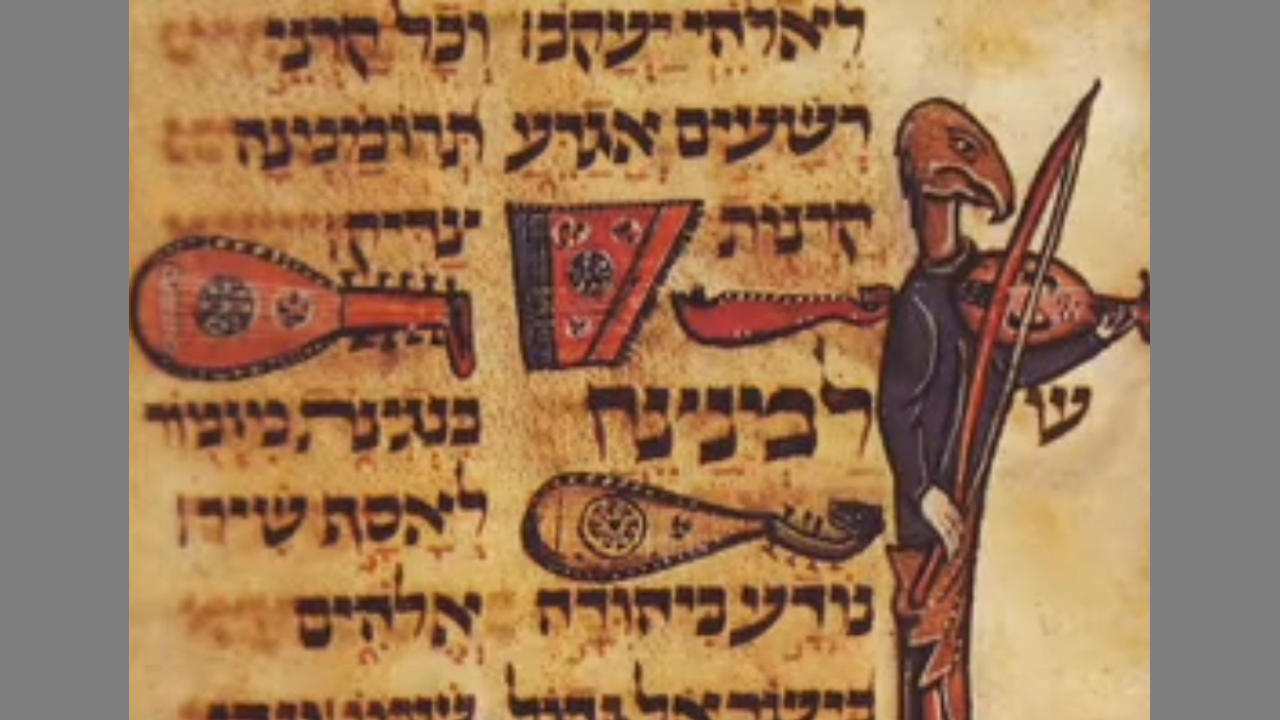 לאלהי יעקב׃ וכל קרני
רשעים אגדע תרוממנה
קרנות צדיק׃
למנצח בנגינת מזמור
ש
לאסף שיר׃
נודע ביהודה אלהים
בישראל גדול